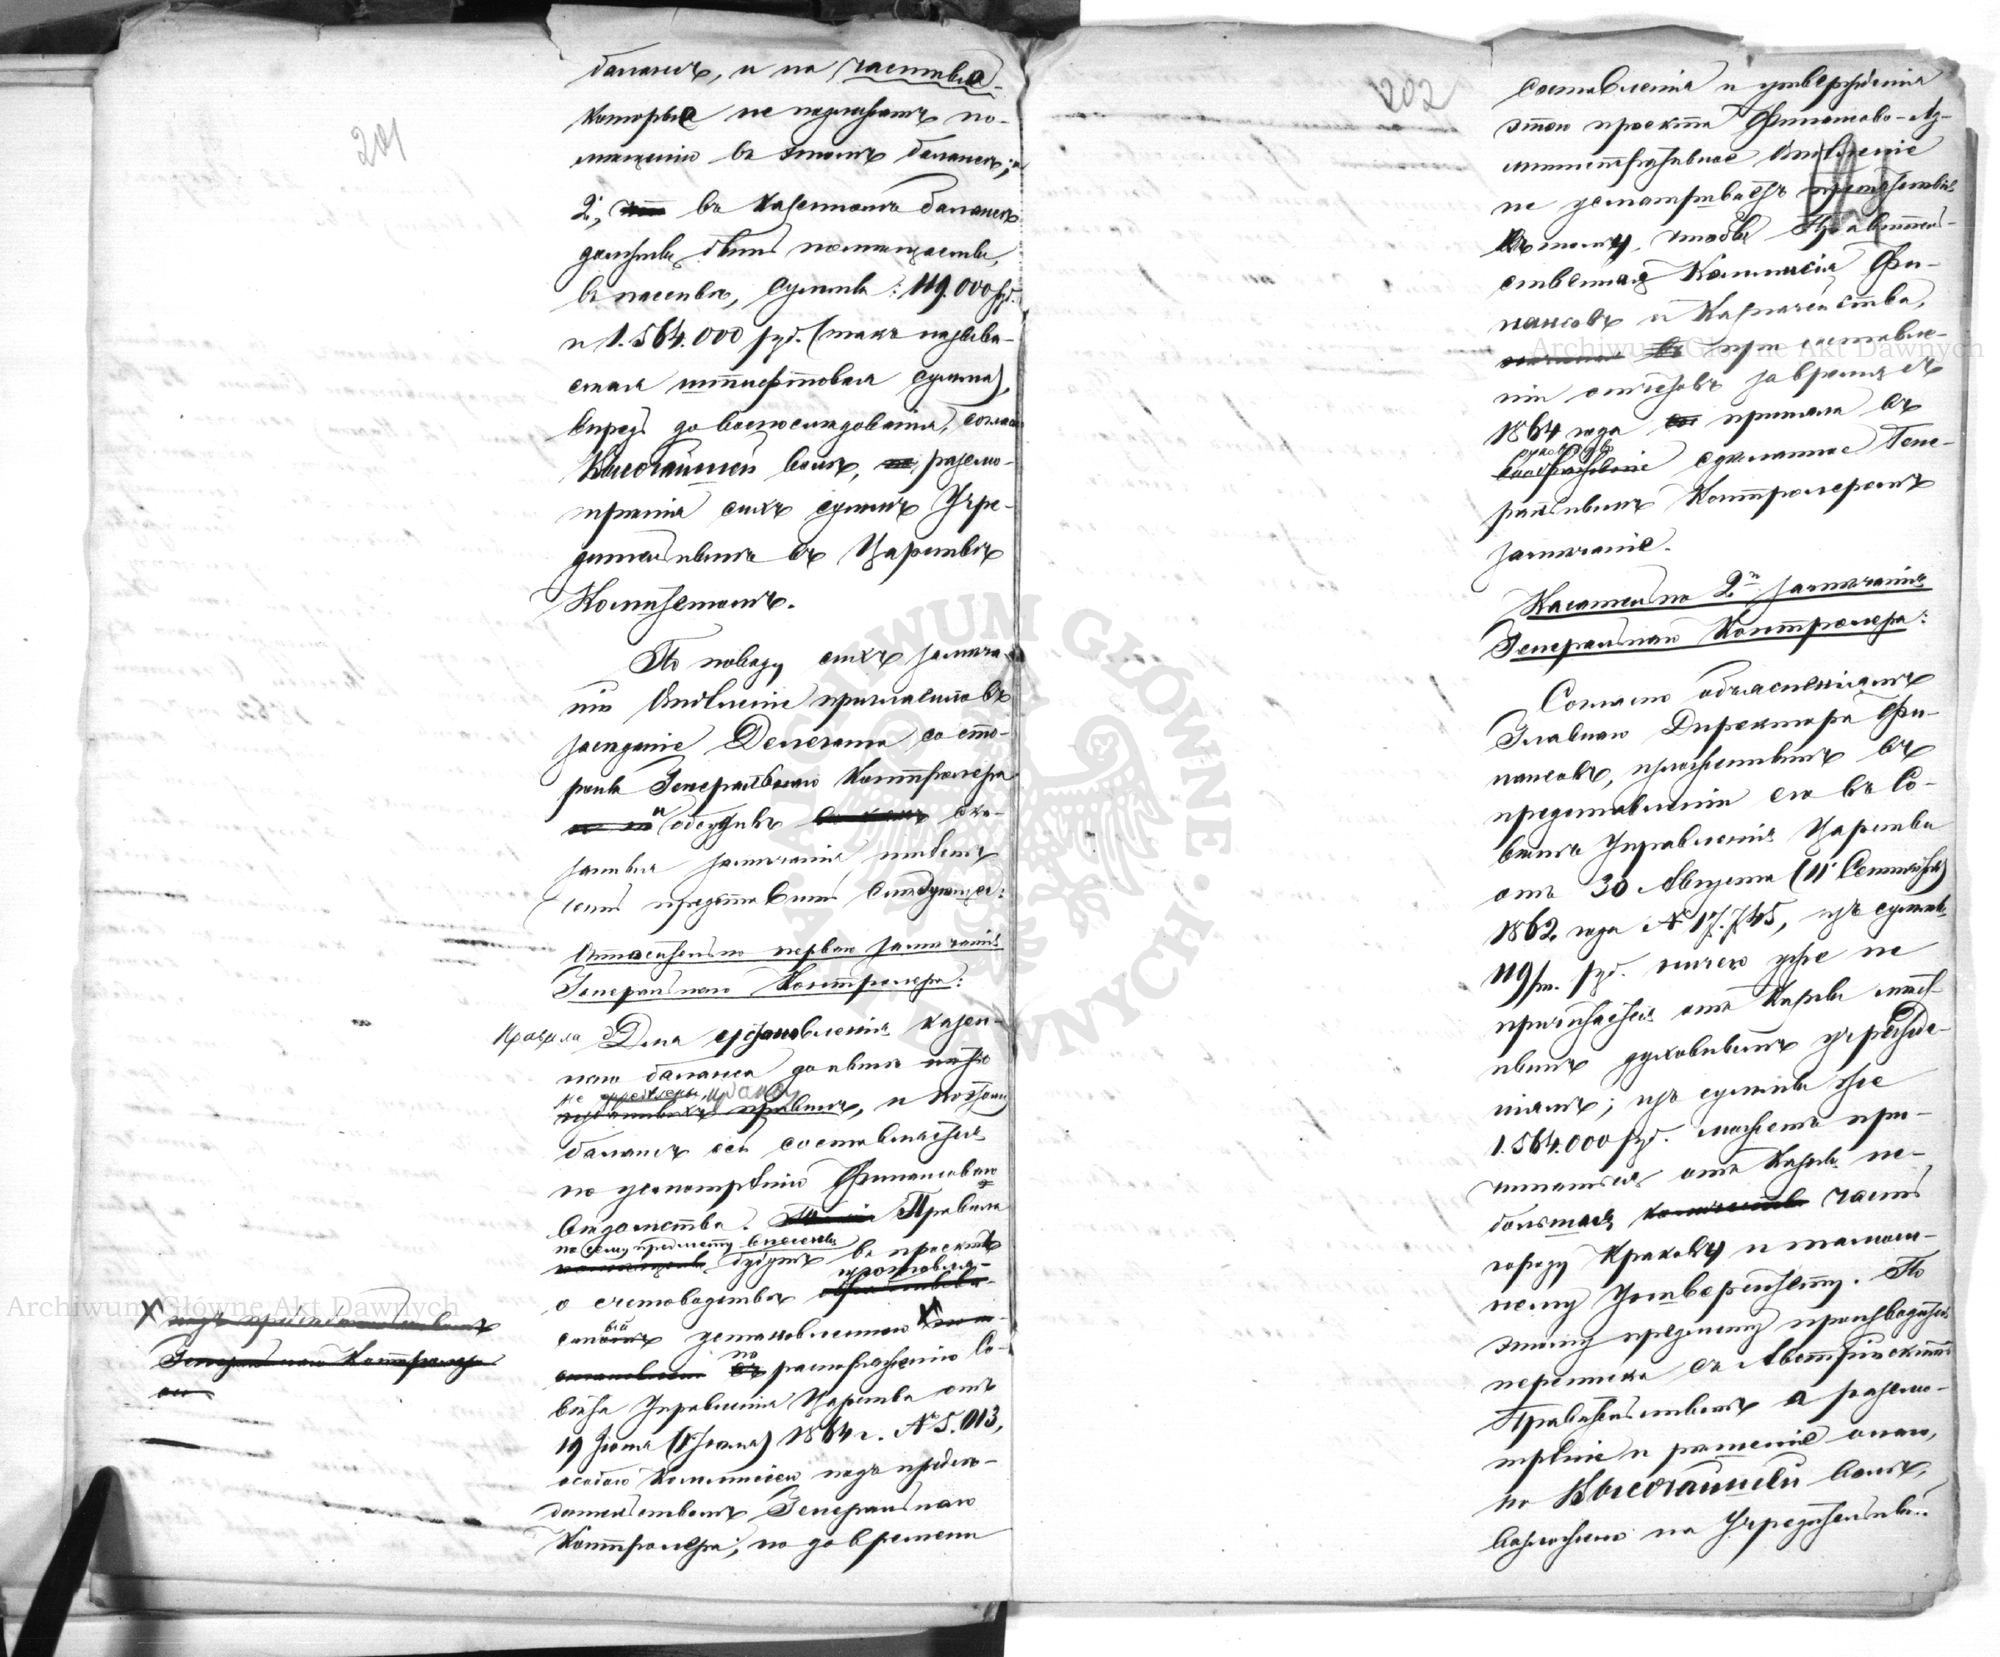 201
балансъ, и на частныя
которыя не подлежатъ по-
мѣщенію въ этомъ балансѣ;
2, въ казенномъ балансѣ
должны быть помѣщаемы,
въ пассивѣ, суммы: 119.000 руб.
и 1.564.000 руб. (такъ называ-
емая сумма),
впредь до воспослѣдованія,
Высочайшей волѣ, разсмо-
трѣнія сихъ суммъ Учре-
дительнымъ въ Царствѣ
Комитетомъ.
По поводу сихъ замѣча-
ній Отдѣленіе пригласило въ
засѣданіе Делегата со сто-
роны Генеральнаго Контролера
и обсудивъ ска-
занныя замѣчанія имѣетъ
честь представить слѣдующее:
Относительно перваго замѣчанія
Генеральнаго Контролера:
Правила Для установленія казен-
наго баланса донынѣ
не преподаны, и потому
балансъ сей составляется
по усмотрѣнію Финансоваго
Вѣдомства. Правила
по сему предмету внесены
будутъ въ проектъ
о счетоводствѣ изготовля-
емый установленною
по распоряженію Со-
вѣта Управленія Царства отъ
19 Іюня (1 Іюля) 1864 г. № 5.013,
особою Коммисіею подъ предсѣ-
дательствомъ Генеральнаго
Контролера; но до времени
X подъ предсѣдательствомъ
Генеральнаго Контролера
202
составленія и утвержденія
этого проекта Финансово-Ад-
министративное Отдѣленіе
не усматриваетъ препятствія
къ тому, чтобы Правитель-
ственная Коммисія Фи-
нансовъ и Казначейства,
при составле-
ніи отчетовъ за время съ
1864 года приняла въ
руководство сдѣланное Гене-
ральнымъ Контролеромъ
замѣчаніе.
Касательно 2го замѣчанія
Генеральнаго Контролера:
Согласно объясненіямъ
Главнаго Директора Фи-
нансовъ, изложеннымъ въ
представленіи его въ Со-
вѣтъ Управленія Царства
отъ 30 Августа (11 Сентября)
1862 года № 17.745, изъ суммы
119/т. руб. ничего уже не
причитается отъ Казны
духовнымъ учрежде-
ніямъ; изъ суммы же
1.564.000 руб. можетъ при-
читаться отъ Казны не-
большая часть
городу Кракову и тамош-
нему Университету. По
этому предмету производится
переписка съ Австрійскимъ
Правительствомъ а разсмо-
трѣніе и рѣшеніе онаго,
по Высочайшей волѣ,
возложено на Учредительный
Archiwum Główne Akt Dawnych
Archiwum Główne Akt Dawnych
ARCHIWUM GŁÓWNE AKT DAWNYCH